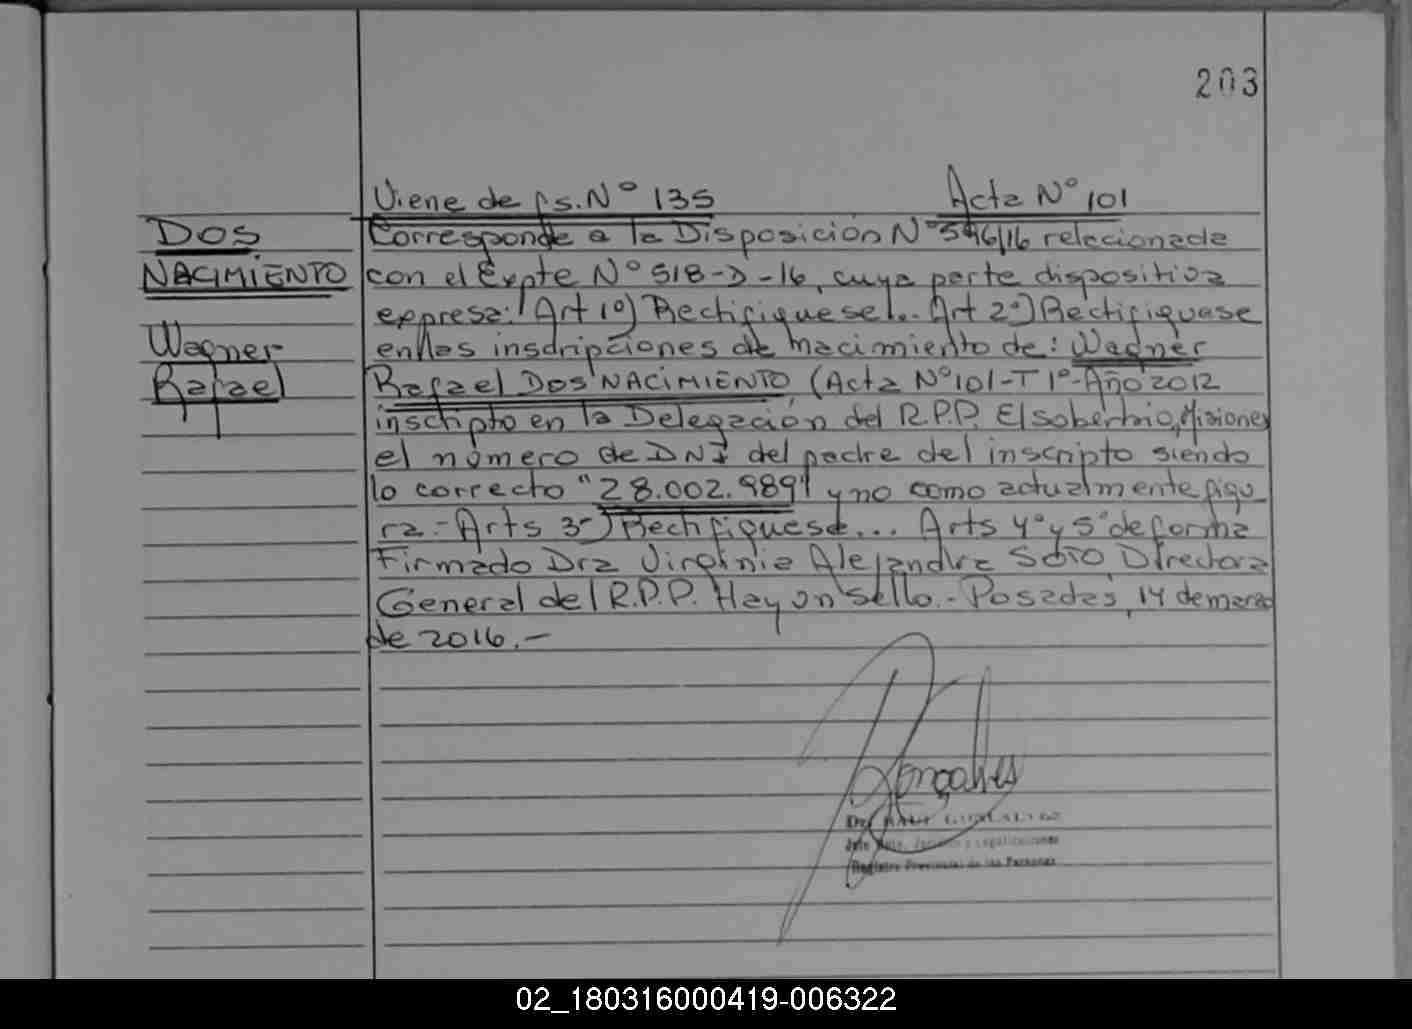 203
Viene de fs. Nº 135 Acta Nº 101
DOS
NACIMIENTO
Wagner
Rafael
Corresponde a la Disposición Nº 596/16 relacionada
con el Expte Nº 518-D-16, cuya parte dispositiva
expresa: Art 1º) Rectifiquese... Art 2º) Rectifiquese
en las inscripciones de nacimiento de: Wagner
Rafael DOS NACIMIENTO (Acta Nº 101-T 1º-Año 2012
inscripto en la Delegación del R.P.P. El soberbio, Misiones
el número de DNI del padre del inscripto siendo
lo correcto "28.002.989" y no como actualmente figu-
ra.- Arts 3º) Rectifiquese... Arts 4º y 5º de forma
Firmado Dra Virginia Alejandra SOTO Directora
General del R.P.P. Hay un Sello.- Posadas, 14 de marzo
de 2016.-
Registro Provincial de las Personas
02_180316000419-006322